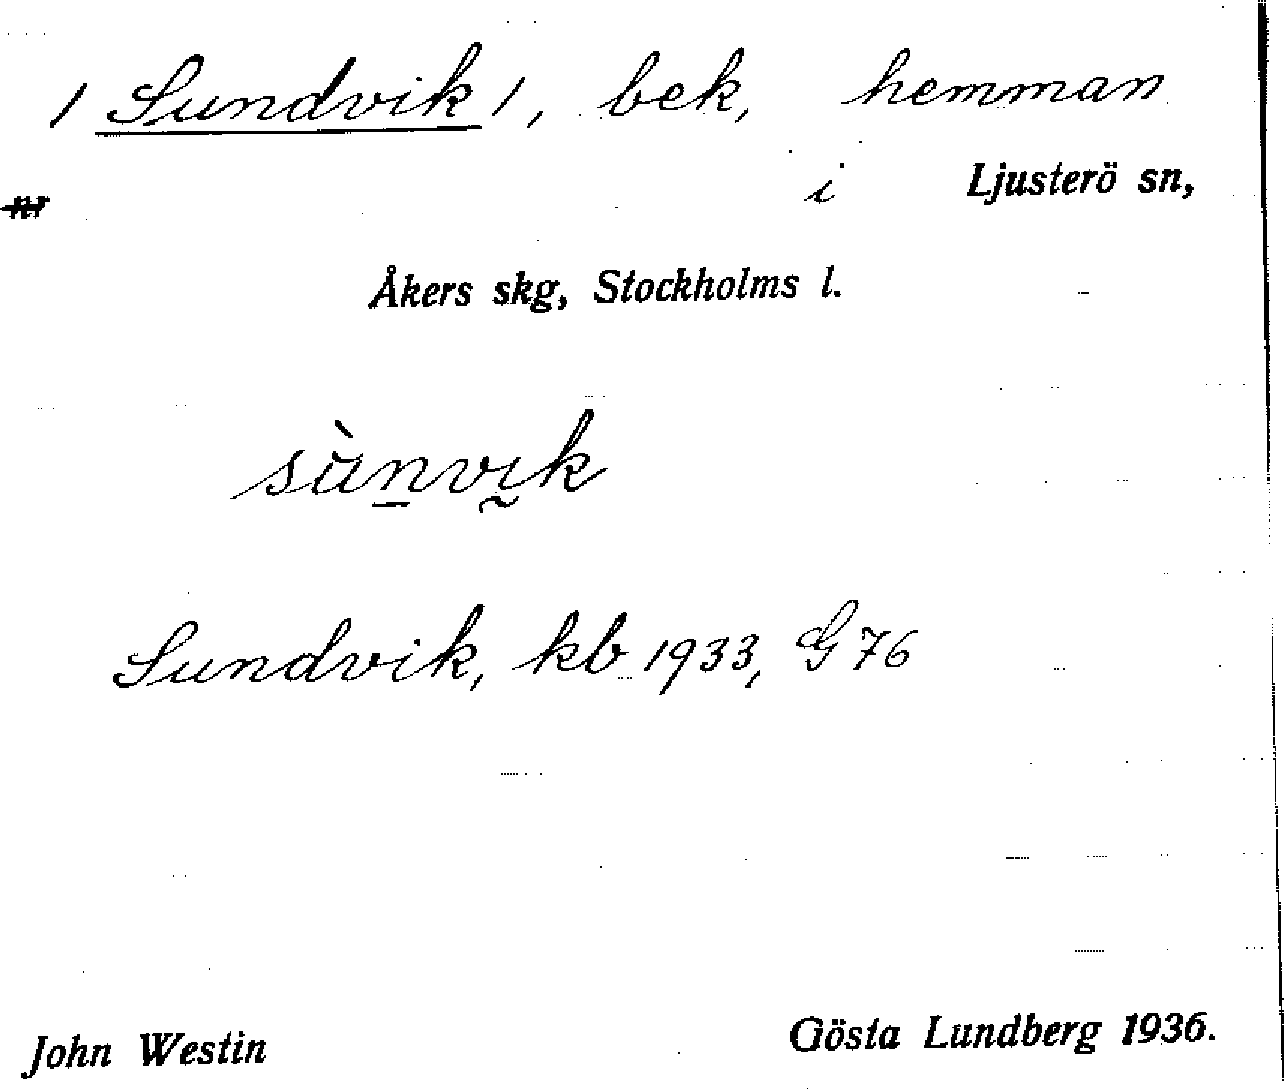 / Sundvik /, bek, hemman
nr i Ljusterö sn,
Åkers skg, Stockholms l.
sùn̲vı̰k
Sundvik, kb 1933, G 76
John Westin Gösta Lundberg 1936.